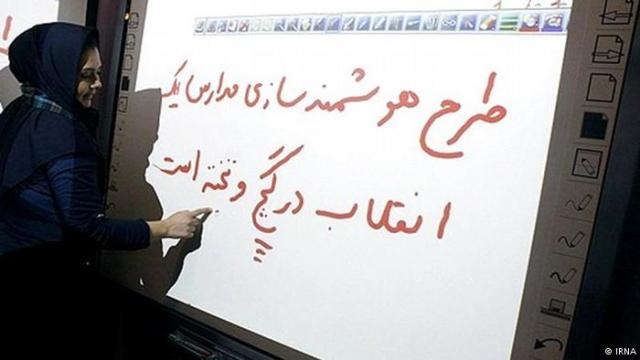 طرح هوشمند سازی مدارس یک
انقلاب در گچ و تخته است
© IRNA